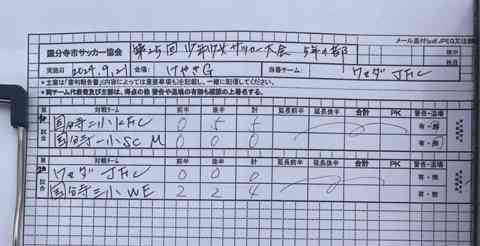 メール添付(pdf,JPEG又は
国分寺市サッカー協会 第25回 けやき杯サッカー大会 5年の部
実施日 2024.9.21 会場: けやきG 当番チーム ワセダJFC
★主審は「審判報告書」の内容によっては重要事項もあるので、一緒に配信してください。
★両チーム代表者及び主部は、得点の他 警告や退場の有無も確認の上署名する。
対戦チーム 前半 後半 計 延長前半 延長後半 合計 PK 警告・退場
国分寺二小KFC 0 5 5 有・無
国分寺一小SC M 0 0 0 有・無
対戦チーム 前半 後半 計 延長前半 延長後半 合計 PK 警告・退場
ワセダ JFC 0 0 0 有・無
国分寺三小WE 2 2 4 有・無